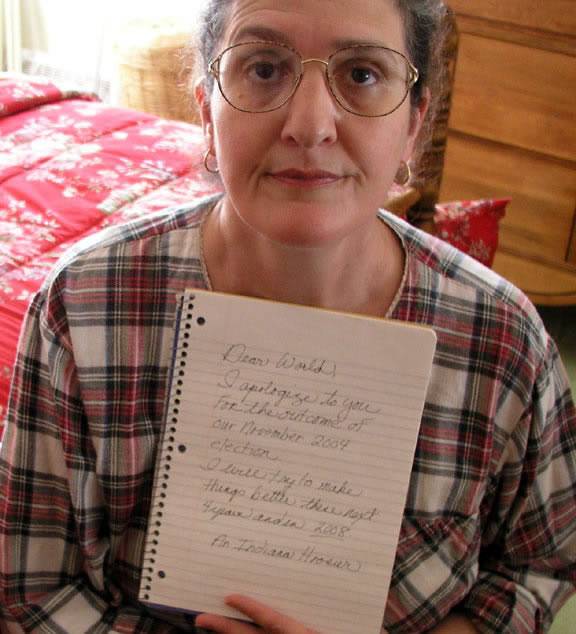 Dear World,
I apologize to you
for the outcome of
our November 2004
election.
I will try to make
things better these next
4 years and in 2008.
An Indiana Hoosier